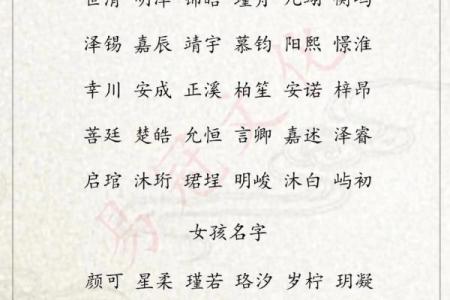 泽锡 嘉辰 靖宇 慕钧 阳熙 憬淮
幸川 安成 正溪 柏笙 安诺 梓昂
菩廷 楚皓 允恒 言卿 嘉述 泽睿
启琯 沐珩 珺埕 明峻 沐白 屿初
女孩名字
颜可 星柔 瑾若 珞汐 岁柠 玥凝
易冠文化